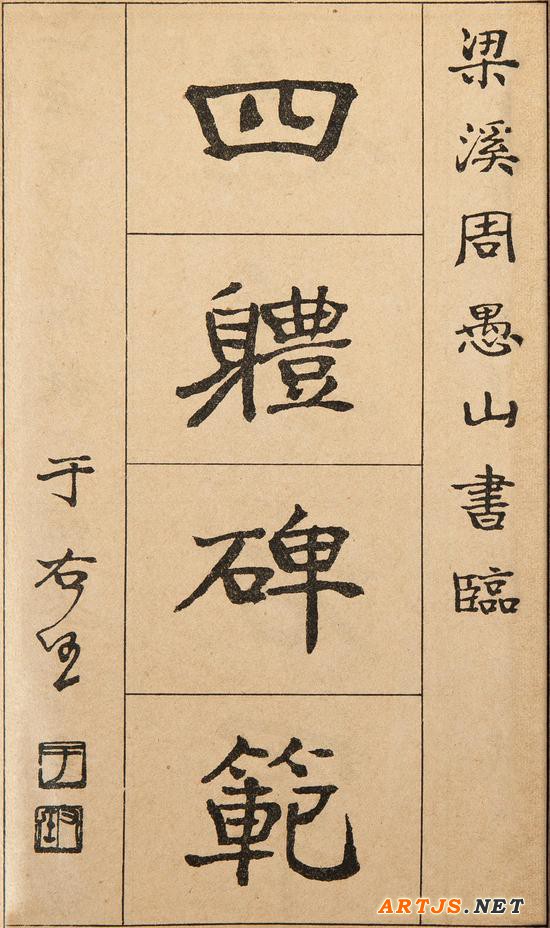 梁溪周愚山書臨
四軆碑範
于右任
ARTJS.NET